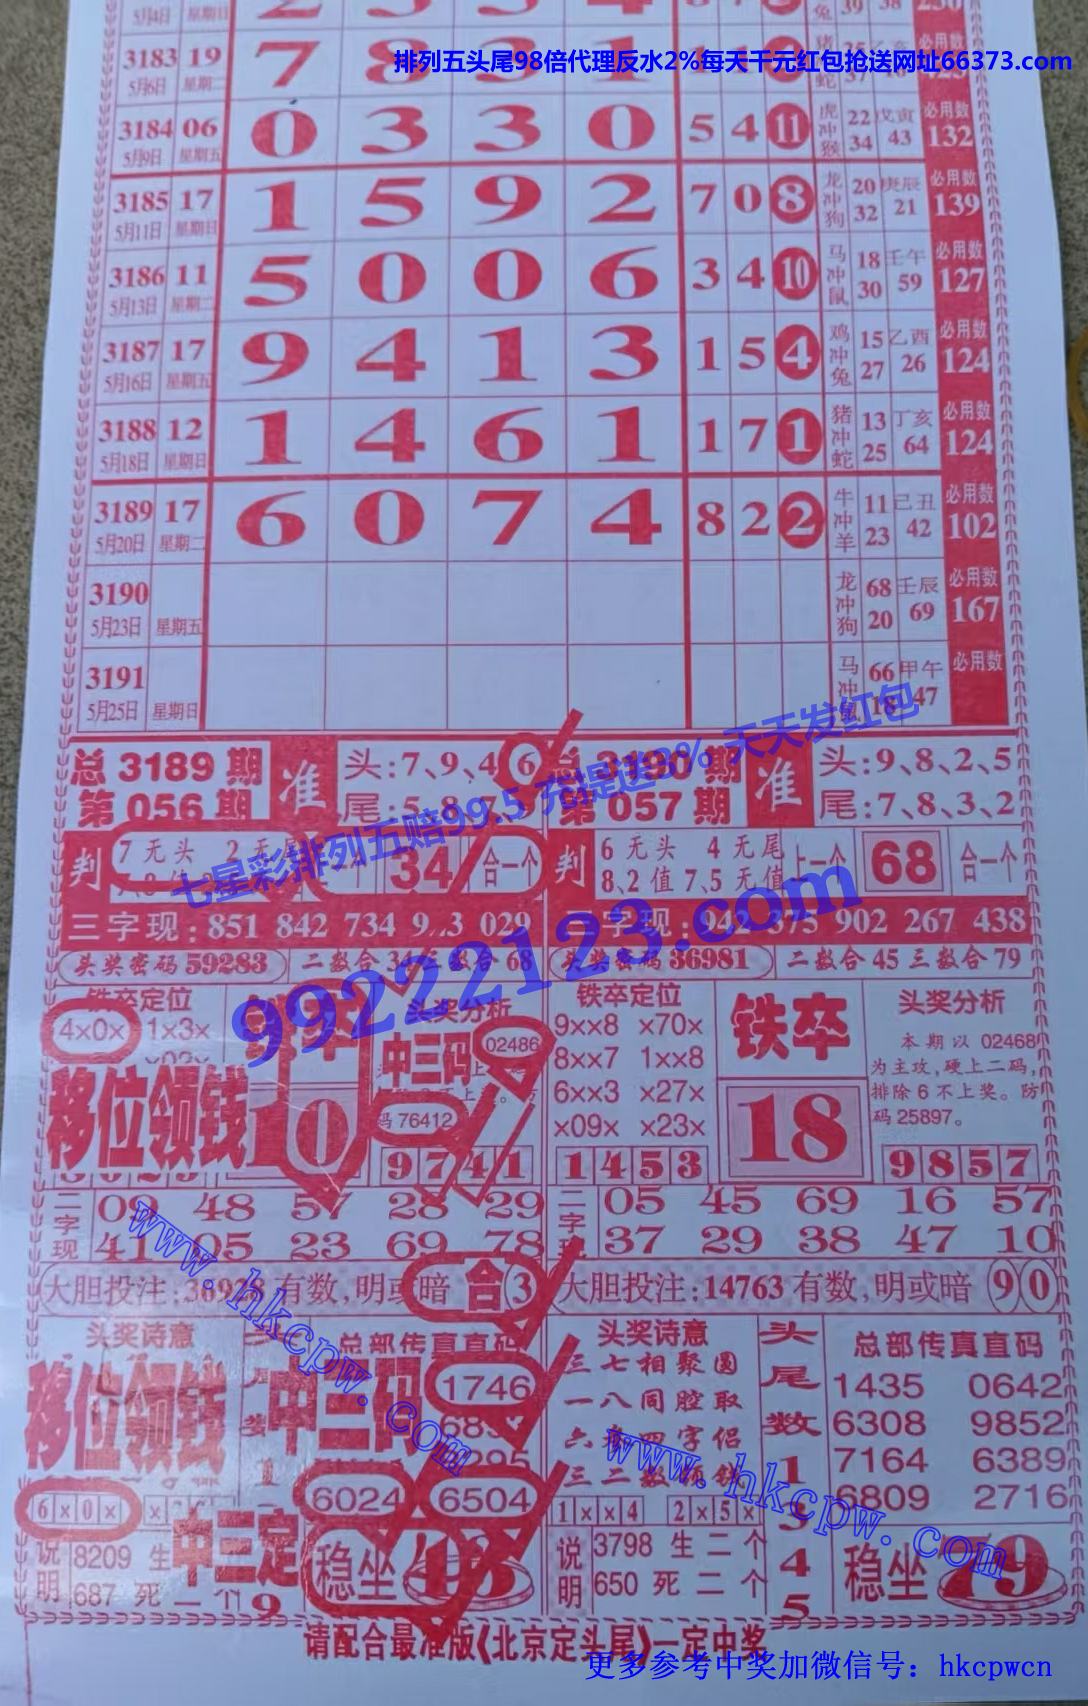 5月4日 星期日
排列五头尾98倍代理反水2%每天千元红包抢送网址66373.com
3183 19 7 8 3
5月6日 星期二
3184 06 0 3 3 0 5 4 11 虎冲猴 22 34 戊寅 43 必用数 132
5月9日 星期五
3185 17 1 5 9 2 7 0 8 龙冲狗 20 32 庚辰 21 必用数 139
5月11日 星期日
3186 11 5 0 0 6 3 4 10 马冲鼠 18 30 壬午 59 必用数 127
5月13日 星期二
3187 17 9 4 1 3 1 5 4 鸡冲兔 15 27 乙酉 26 必用数 124
5月16日 星期五
3188 12 1 4 6 1 1 7 1 猪冲蛇 13 25 丁亥 64 必用数 124
5月18日 星期日
3189 17 6 0 7 4 8 2 2 牛冲羊 11 23 己丑 42 必用数 102
5月20日 星期二
3190 龙冲狗 68 20 壬辰 69 必用数 167
5月23日 星期五
3191 马冲鼠 66 18 甲午 47 必用数
5月25日 星期日
七星彩排列五赔99.5 充提送3% 天天发红包
99222123.com
总 3189 期
第 056 期
准
头:7、9、4、6
判 7 无头 2 无尾
34 合一个
三字现: 851 842 734 029
头奖密码 59283 二数合 34 三数合 68
铁卒定位
4×0× 1×3×
移位领钱
头奖分析
中三码
02486
码 76412
9741
二字现 09 48 57 28 29
41 05 23 69 78
大胆投注: 有数,明或暗 合 3
头奖诗意
移位领钱
总部传真直码
中三码
1746
6024 6504
6×0×
中三定
说明 8209 生
687 死 二个
9
稳坐
总 3190 期
第 057 期
准
头:9、8、2、5
尾:7、8、3、2
判 6 无头 4 无尾 上一个 68 合一个
8、2 值 7、5 无值
三字现: 942 375 902 267 438
头奖密码 36981 二数合 45 三数合 79
铁卒定位
9××8 ×70×
8××7 1××8
6××3 ×27×
×09× ×23×
1453
铁卒
18
头奖分析
本期以 02468
为主攻,硬上二码,
排除 6 不上奖。防
码 25897。
9857
二字现 05 45 69 16 57
37 29 38 47 10
大胆投注:14763 有数,明或暗 9 0
头奖诗意
三七相聚圆
一八同腔取
头尾数 1 3 4 5
总部传真直码
1435 0642
6308 9852
7164 6389
6809 2716
1××4 2×5×
说明 3798 生 二个
650 死 二个
稳坐 79
www.hkcpw.com
www.hkcpw.com
请配合最准版《北京定头尾》一定中奖
更多参考中奖加微信号：hkcpwcn